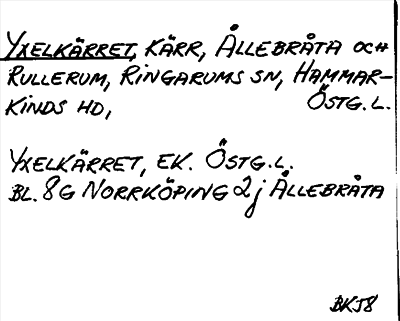 YXELKÄRRET, KÄRR, ÅLLEBRÅTA OCH
RULLERUM, RINGARUMS SN, HAMMAR-
KINDS HD, ÖSTG.L.
YXELKÄRRET, EK. ÖSTG.L.
BL. 8G NORRKÖPING 2j ÅLLEBRÅTA
BKJ8